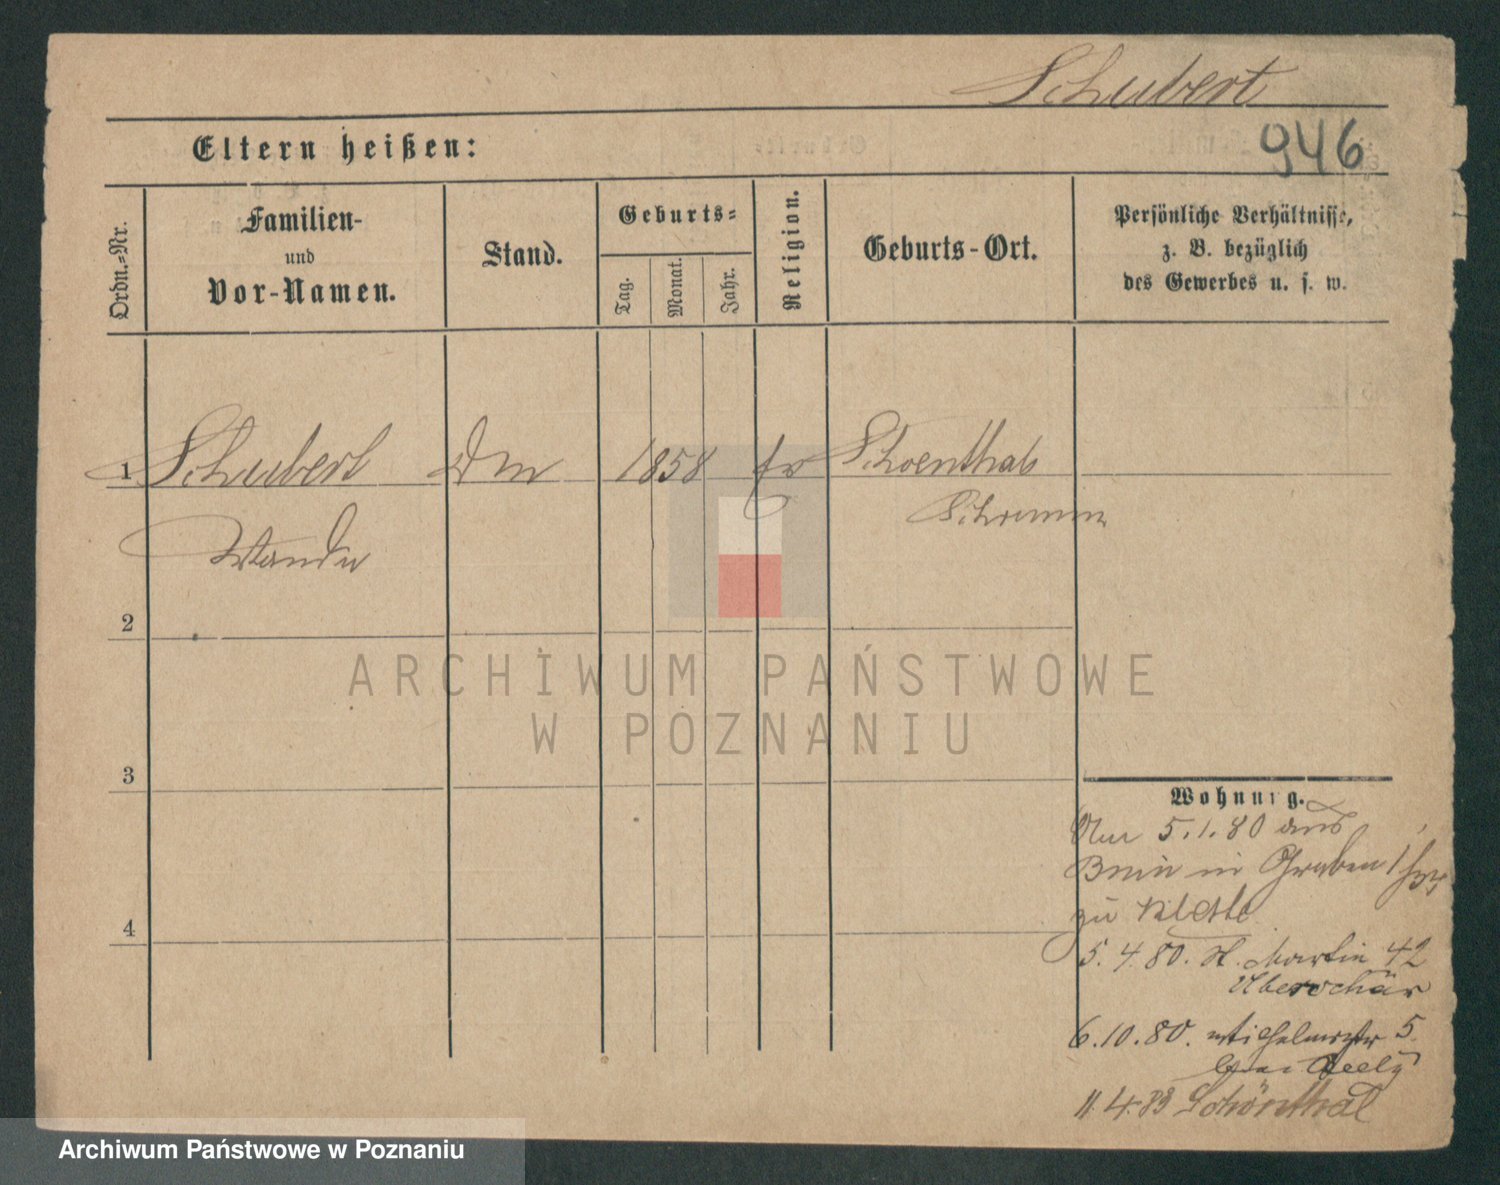 Schubert
946
Eltern heißen:
Ordn.-Nr.
Familien-
und
Vor-Namen.
Stand.
Geburts-
Tag.
Monat.
Jahr.
Religion.
Geburts-Ort.
Persönliche Verhältnisse,
z. B. bezüglich
des Gewerbes u. s. w.
1 Schubert 1858 Schoenthal
Schrimm
Wanda
2
3
4
Wohnung.
5.1.80 aus
Bnin in Graben 1
zu Kletke
5.4.80. St. Martin 42
6.10.80. 5
11.4.83 Schönthal
ARCHIWUM PAŃSTWOWE
W POZNANIU
Archiwum Państwowe w Poznaniu